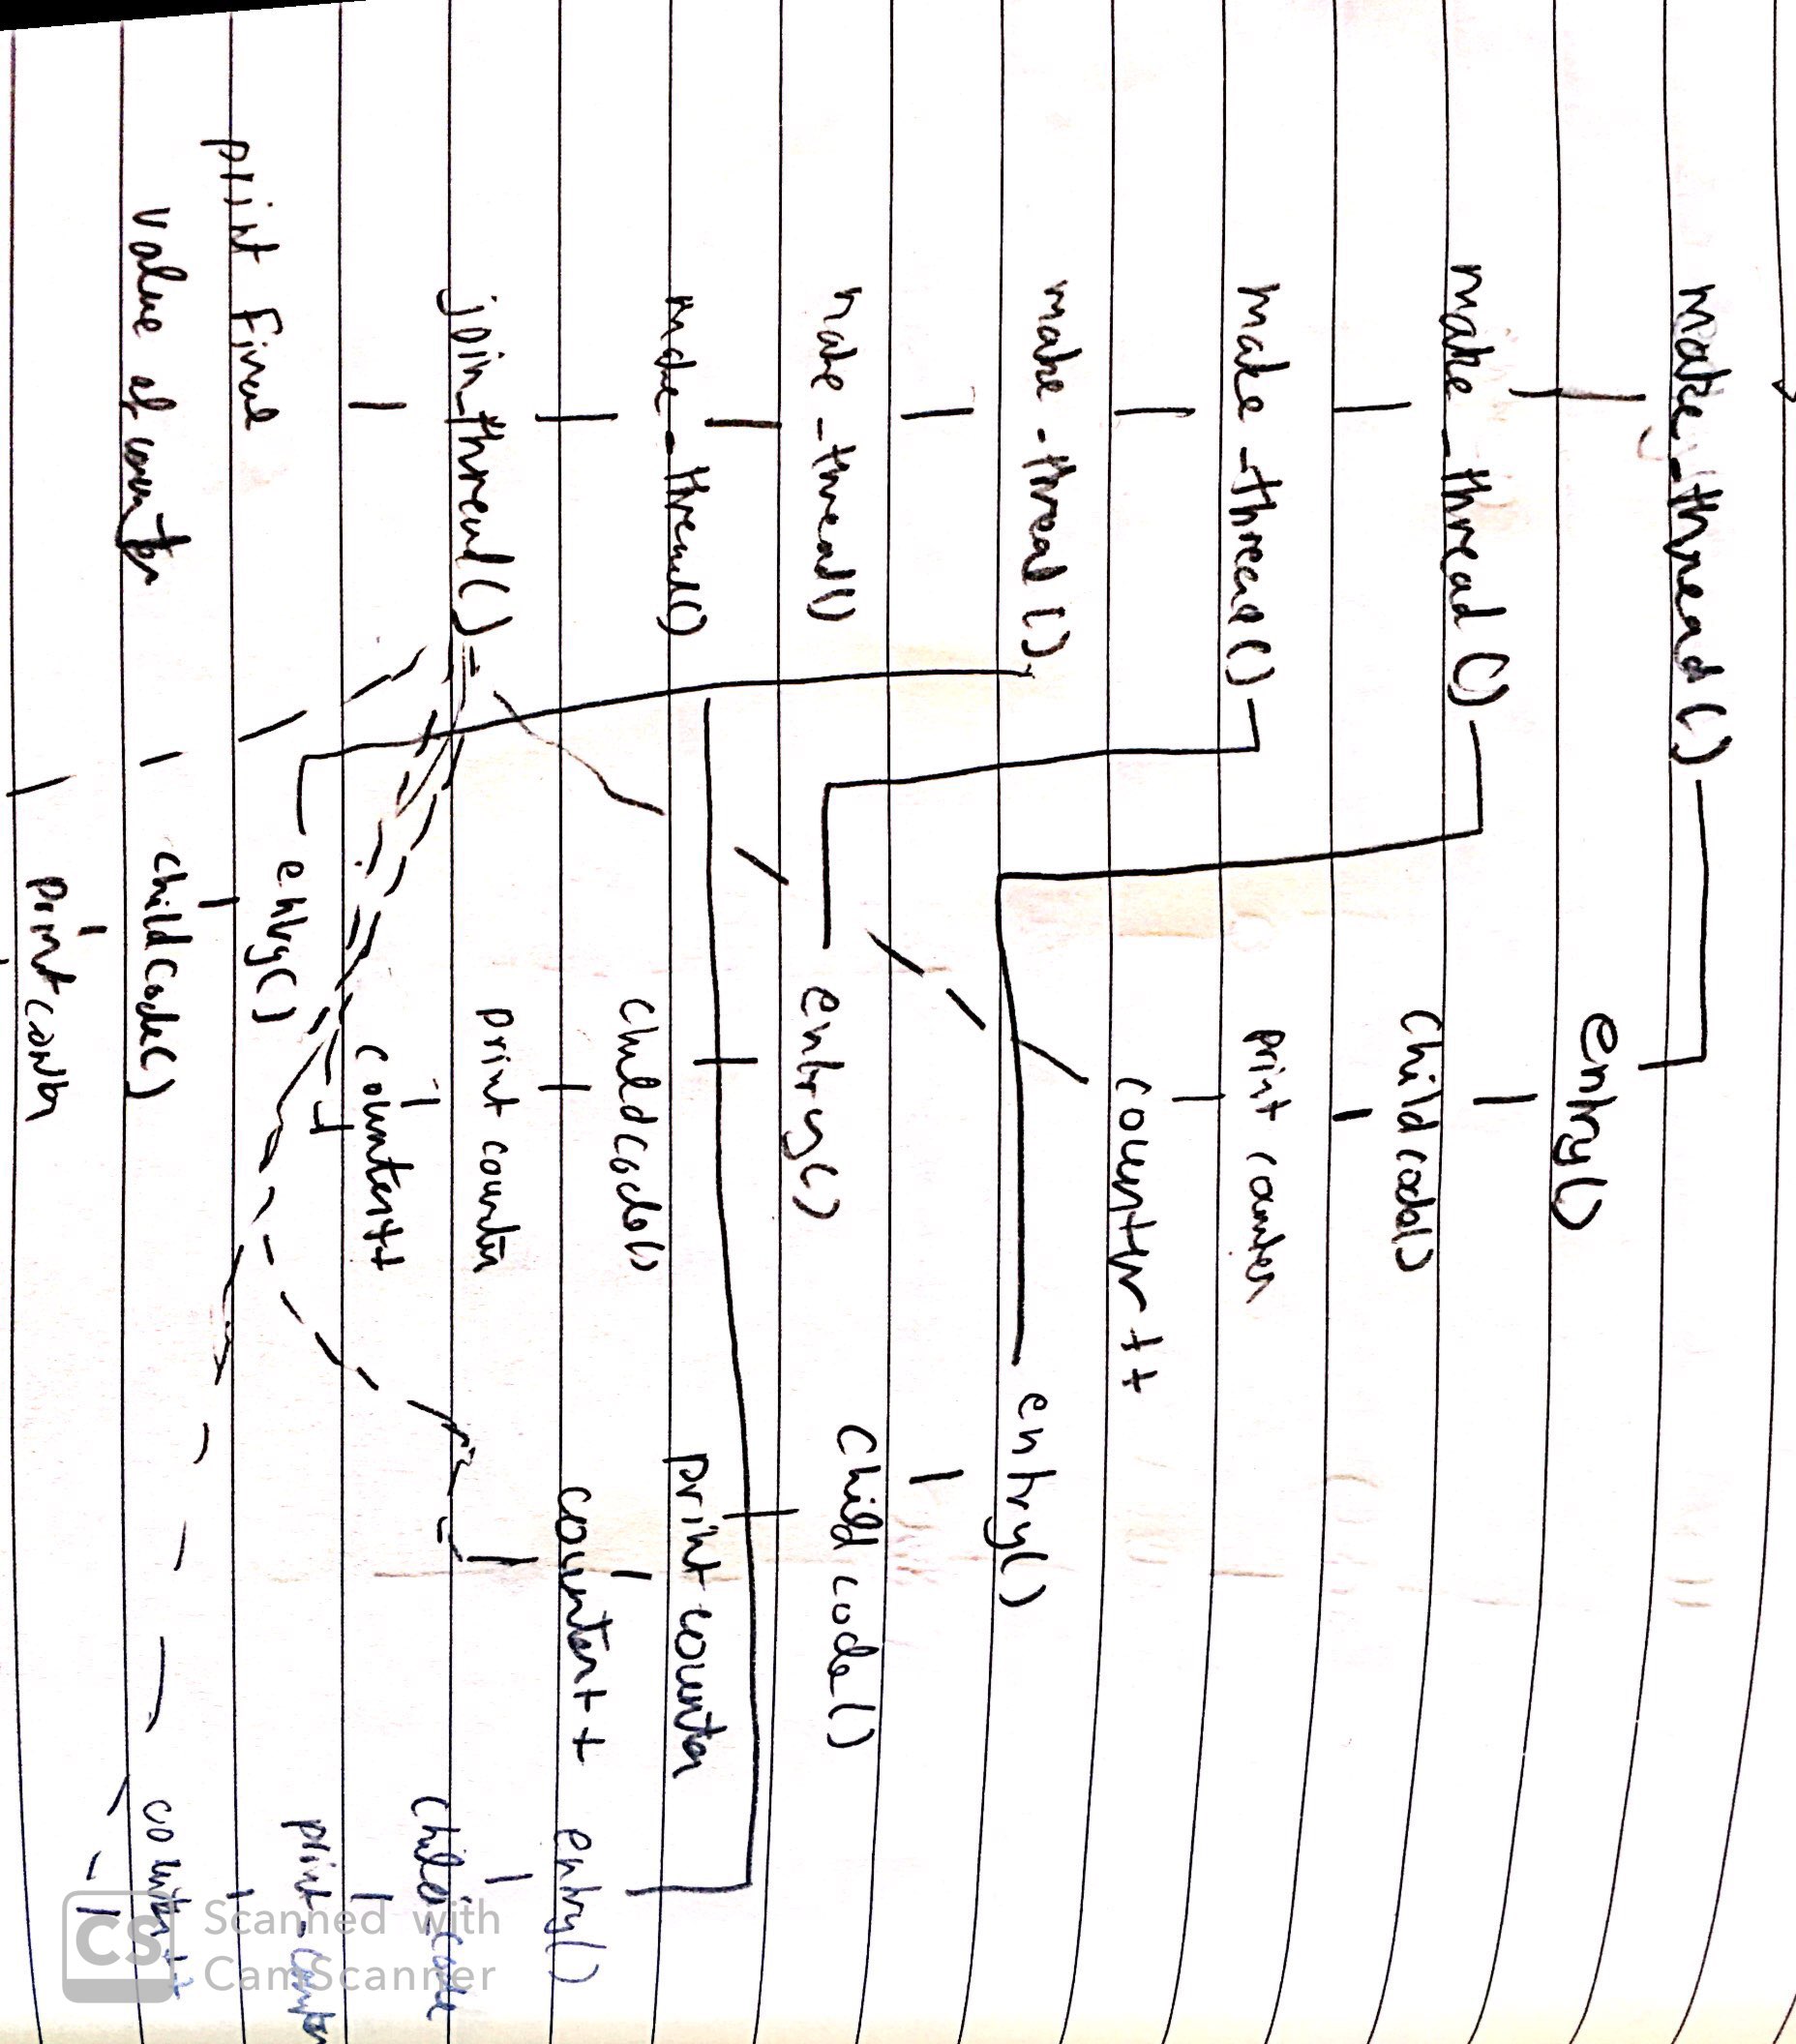 make_thread()
make_thread()
make_thread()
make_thread()
make_thread()
make_thread()
join_thread()
print Final
value of counter
entry()
child code()
print counter
counter++
entry()
child code()
print counter
counter++
entry()
childcode()
print counter
counter++
entry()
childcode()
print counter
entry()
child_code
print_counter
counter++
CS
Scanned with
CamScanner